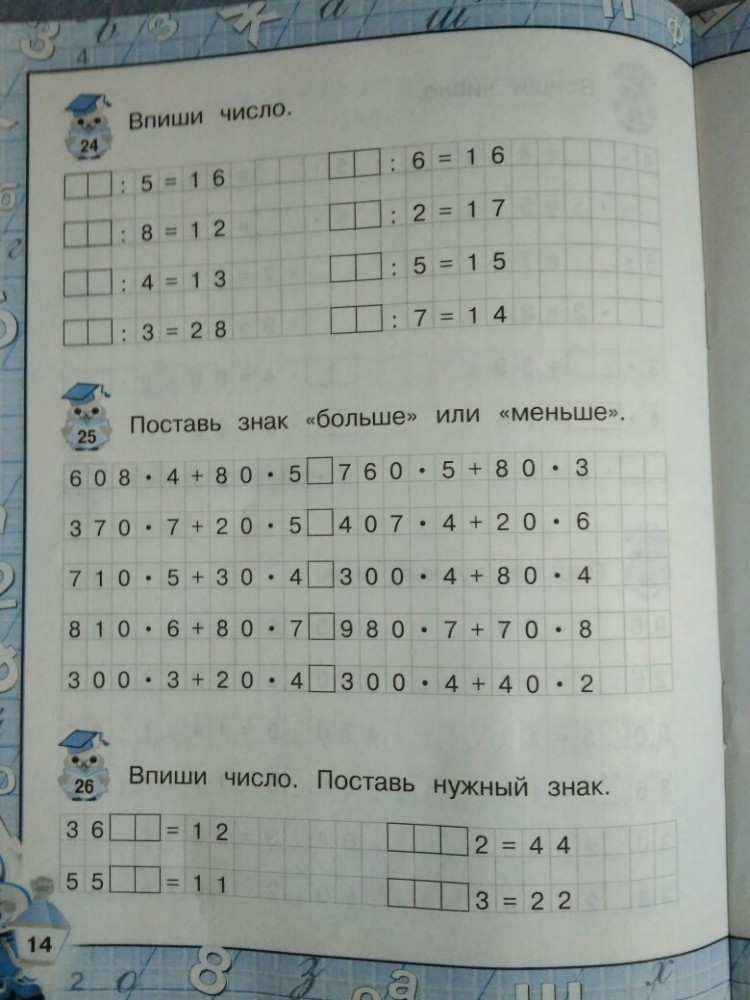 4
24 Впиши число.
: 5 = 16 : 6 = 16
: 8 = 12 : 2 = 17
: 4 = 13 : 5 = 15
: 3 = 28 : 7 = 14
25 Поставь знак «больше» или «меньше».
608 · 4 + 80 · 5 760 · 5 + 80 · 3
370 · 7 + 20 · 5 407 · 4 + 20 · 6
710 · 5 + 30 · 4 300 · 4 + 80 · 4
810 · 6 + 80 · 7 980 · 7 + 70 · 8
300 · 3 + 20 · 4 300 · 4 + 40 · 2
26 Впиши число. Поставь нужный знак.
36 = 12 2 = 44
55 = 11 3 = 22
14